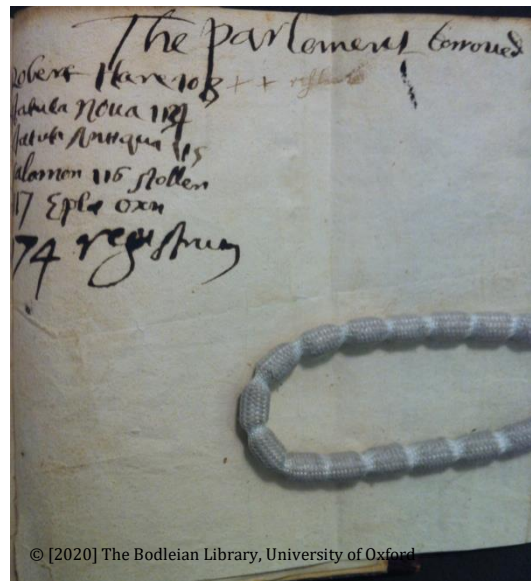 The parlement borroued
Robert Hare 103 + +
Statuta Noua 114
Statuta Antiqua 115
Salomon 116 stollen
117 Eplæ oxn
74 registrum
© [2020] The Bodleian Library, University of Oxford